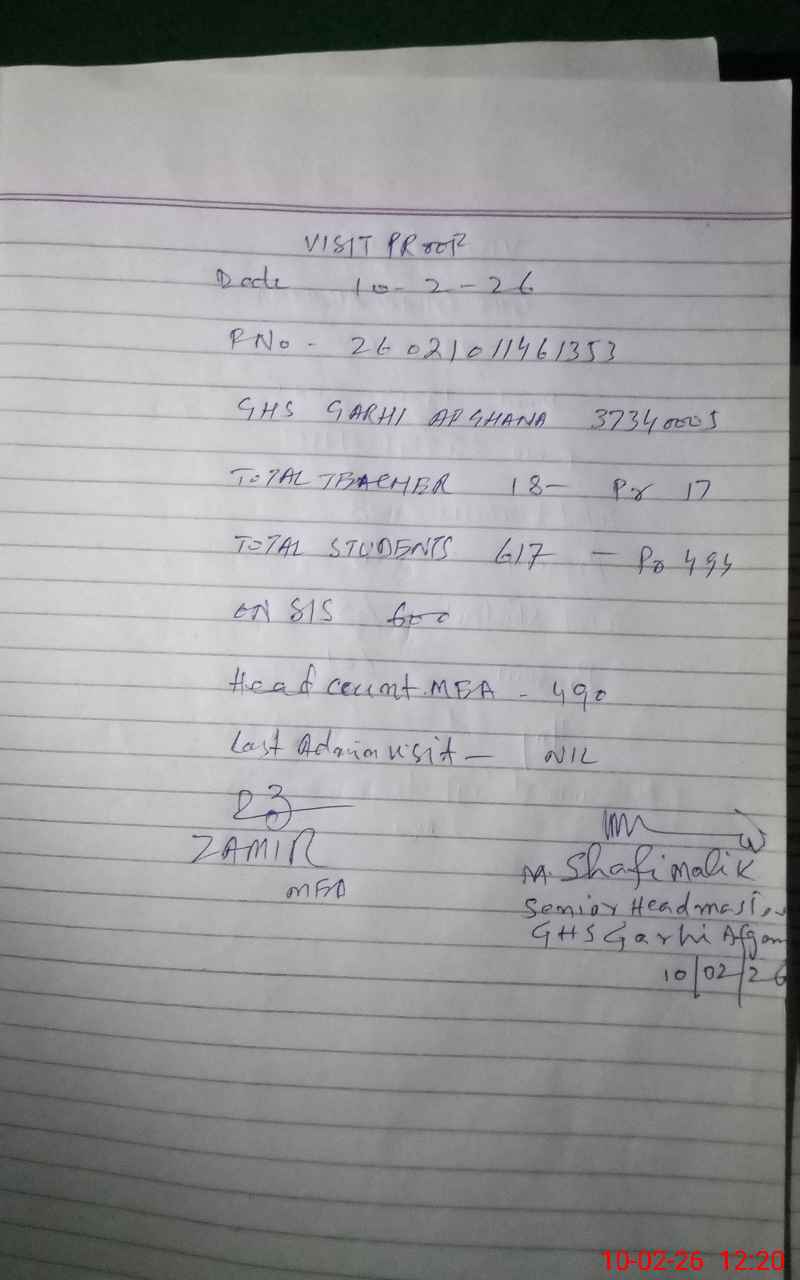 VISIT PROOF
Date 10-2-26
RNo - 26021011461353
GHS GARHI AFGHANA 37340005
TOTAL TEACHER 18- Pr 17
TOTAL STUDENTS 617 - Pr 494
ON SIS 600
Head count MEA - 490
Last Admin visit - NIL
ZAMIR
MEA
M. Shafi Malik
Senior Headmaster
GHS Garhi Afgan
10/02/26
10-02-26 12:20